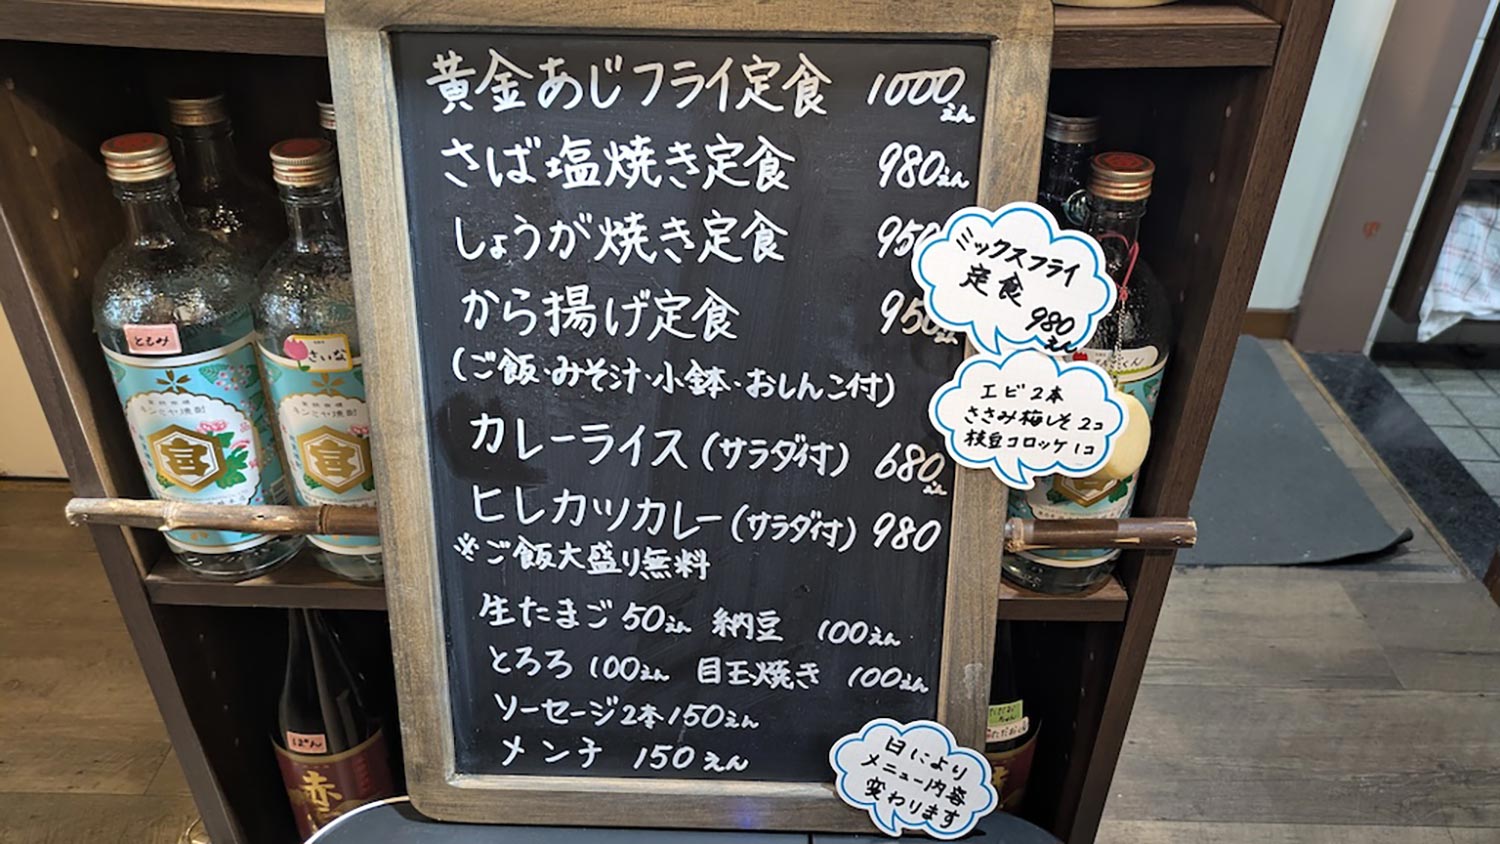 黄金あじフライ定食 1000えん
さば塩焼き定食 980えん
しょうが焼き定食 950
から揚げ定食 950えん
(ご飯・みそ汁・小鉢・おしんこ付)
カレーライス(サラダ付) 680えん
ヒレカツカレー(サラダ付) 980
※ご飯大盛り無料
生たまご50えん 納豆 100えん
とろろ 100えん 目玉焼き 100えん
ソーセージ2本150えん
メンチ 150えん
ミックスフライ
定食
980
えん
エビ2本
ささみ梅しそ2コ
枝豆コロッケ1コ
日により
メニュー内容
変わります
ともみ
キンミヤ焼酎
宮
さいな
キンミヤ焼酎
宮
ぱん
赤